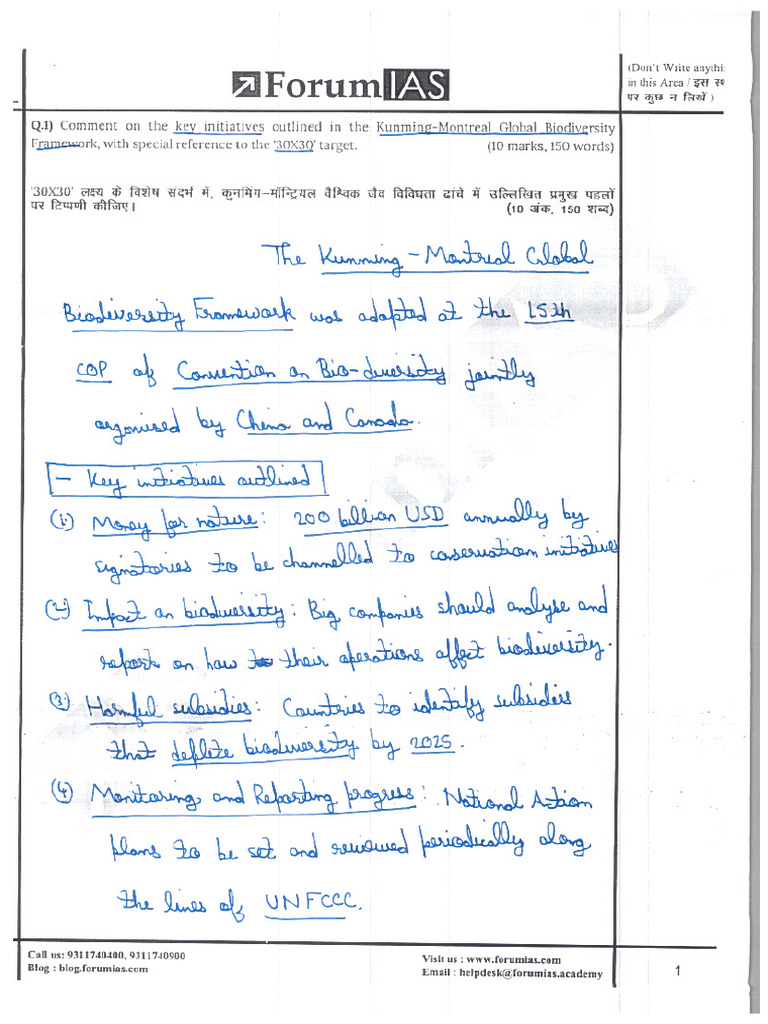 (Don't Write anythi
in this Area / इस स्थ
पर कुछ न लिखें )
ForumIAS
Q.1) Comment on the key initiatives outlined in the Kunming-Montreal Global Biodiversity
Framework, with special reference to the '30X30' target. (10 marks, 150 words)
'30X30' लक्ष्य के विशेष संदर्भ में, कुनमिंग-मॉन्ट्रियल वैश्विक जैव विविधता ढांचे में उल्लिखित प्रमुख पहलों
पर टिप्पणी कीजिए। (10 अंक, 150 शब्द)
The Kunming - Montreal Global
Biodiversity Framework was adopted at the 15th
COP of Convention on Bio-diversity jointly
organised by China and Canada.
- Key initiatives outlined
(1) Money for nature: 200 billion USD annually by
signatories to be channelled to conservation initiatives
(2) Impact on biodiversity: Big companies should analyse and
report on how to their operations affect biodiversity.
(3) Harmful subsidies: Countries to identify subsidies
that deplete biodiversity by 2025.
(4) Monitoring and Reporting progress: National Action
plans to be set and reviewed periodically along
the lines of UNFCCC.
Call us: 9311740400, 9311740900
Blog : blog.forumias.com
Visit us : www.forumias.com
Email : helpdesk@forumias.academy
1